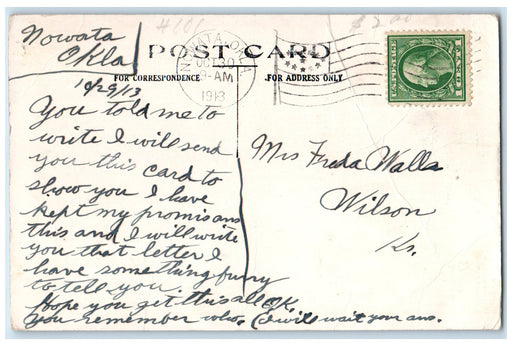 #101
$2.00
Nowata
Okla
10/29/13
POST CARD
FOR CORRESPONDENCE
FOR ADDRESS ONLY
NOWATA, OKLA
OCT 30
9-AM
1913
U.S. POSTAGE
You told me to
write I will send
you this card to
show you I have
kept my promis ans
this and I will write
you that letter I
have something funy
to tell you.
Hope you get this all O.K.
You remember who. (I will wait your ans.
Mrs Freda Walls
Wilson
Ks.